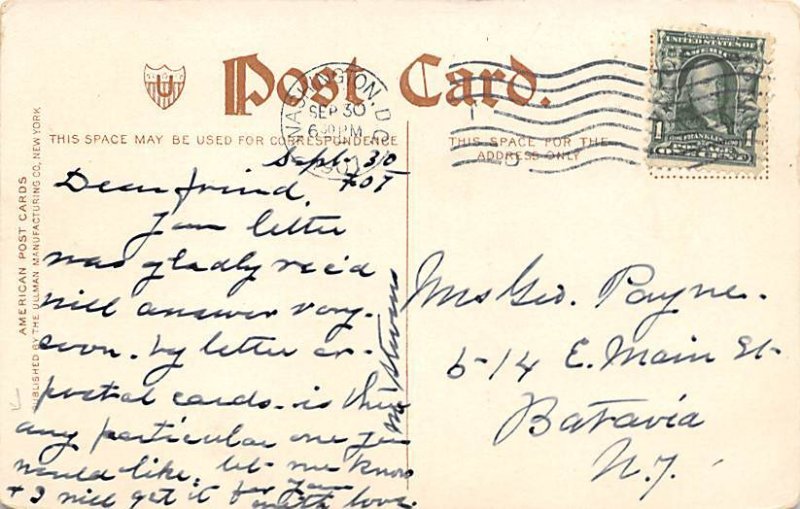 U
Post Card.
WASHINGTON, D.C.
SEP 30
6 30 PM
THIS SPACE MAY BE USED FOR CORRESPONDENCE
THIS SPACE FOR THE
ADDRESS ONLY
SERIES 1902
UNITED STATES OF
AMERICA
1 FRANKLIN 1
ONE CENT
AMERICAN POST CARDS
PUBLISHED BY THE ULLMAN MANUFACTURING CO., NEW YORK
Sept. 30
Dear friend,
Your letter
was gladly rec'd
will answer very
soon. by letter or
postal cards. is there
any particular one you
would like, let me know
+ I will get it for you
with love.
Stevens
Mrs Geo. Payne.
514 E. Main St-
Batavia
N.Y.